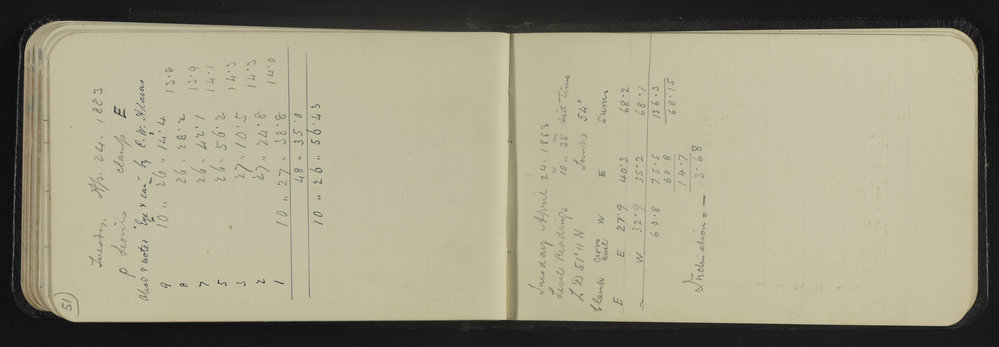 51
Tuesday. Ap. 24. 1883
ρ Leonis clamp E
Obsd & noted "Eye & ear" by C. W. Adams
9 10 " 26 " 14.4 13.8
8 26 " 28.2 13.9
7 26 " 42.1 14.1
5 26 " 56.2 14.3
3 27 " 10.5 14.3
2 27 " 24.8 14.0
1 10 " 27 " 38.8
48 " 35.0
10 " 26 " 56.43
Tuesday April 24. 1883
Level Readings 10 " 35 Sid time
Z D 51° 11 N Temp 54°
Clamp Cross end W E Sums
E E 27.9 40.3 68.2
" W 32.9 35.2 68.1
60.8 75.5 136.3
60.8 68.15
14.7
Inclination = — 3.68